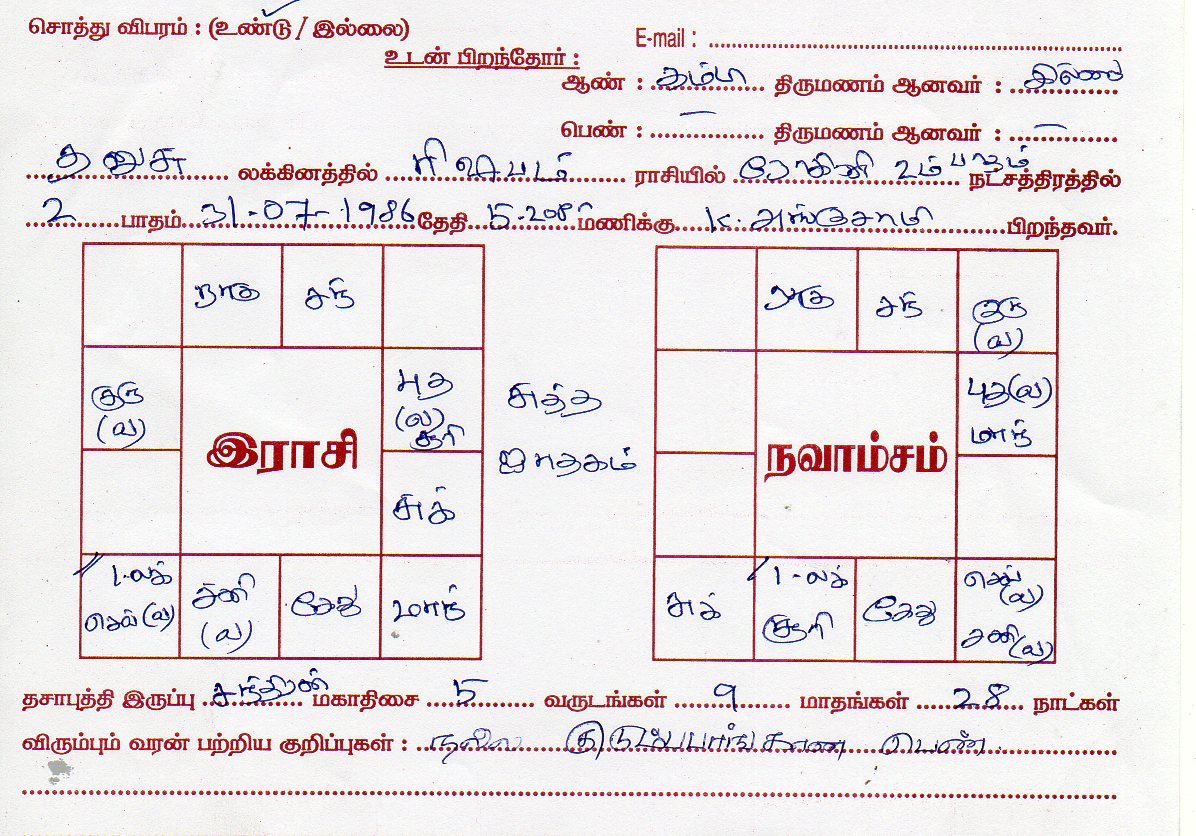 சொத்து விபரம் : (உண்டு / இல்லை)
E-mail :
உடன் பிறந்தோர் :
ஆண் : தம்பி திருமணம் ஆனவர் : இல்லை
பெண் : — திருமணம் ஆனவர் : —
தனுசு லக்கினத்தில் ரிஷபம் ராசியில் ரோகினி 2ம் பாதம் நட்சத்திரத்தில்
2 பாதம் 31-07-1986 தேதி 5-20 மணிக்கு பிறந்தவர்.
ராகு சந்
ராகு சந் குரு (வ)
குரு (வ) புத (வ) சூரி
சுத்த
புத(வ) மாந்
இராசி
நவாம்சம்
ஜாதகம்
சுக்
1-லக் செவ்(வ) சனி (வ) கேது மாந்
சுக் 1-லக் சூரி கேது செவ் (வ) சனி(வ)
தசாபுத்தி இருப்பு சந்திரன் மகாதிசை 5 வருடங்கள் 9 மாதங்கள் 28 நாட்கள்
விரும்பும் வரன் பற்றிய குறிப்புகள் : நல்ல குடும்பபாங்கான பெண்.